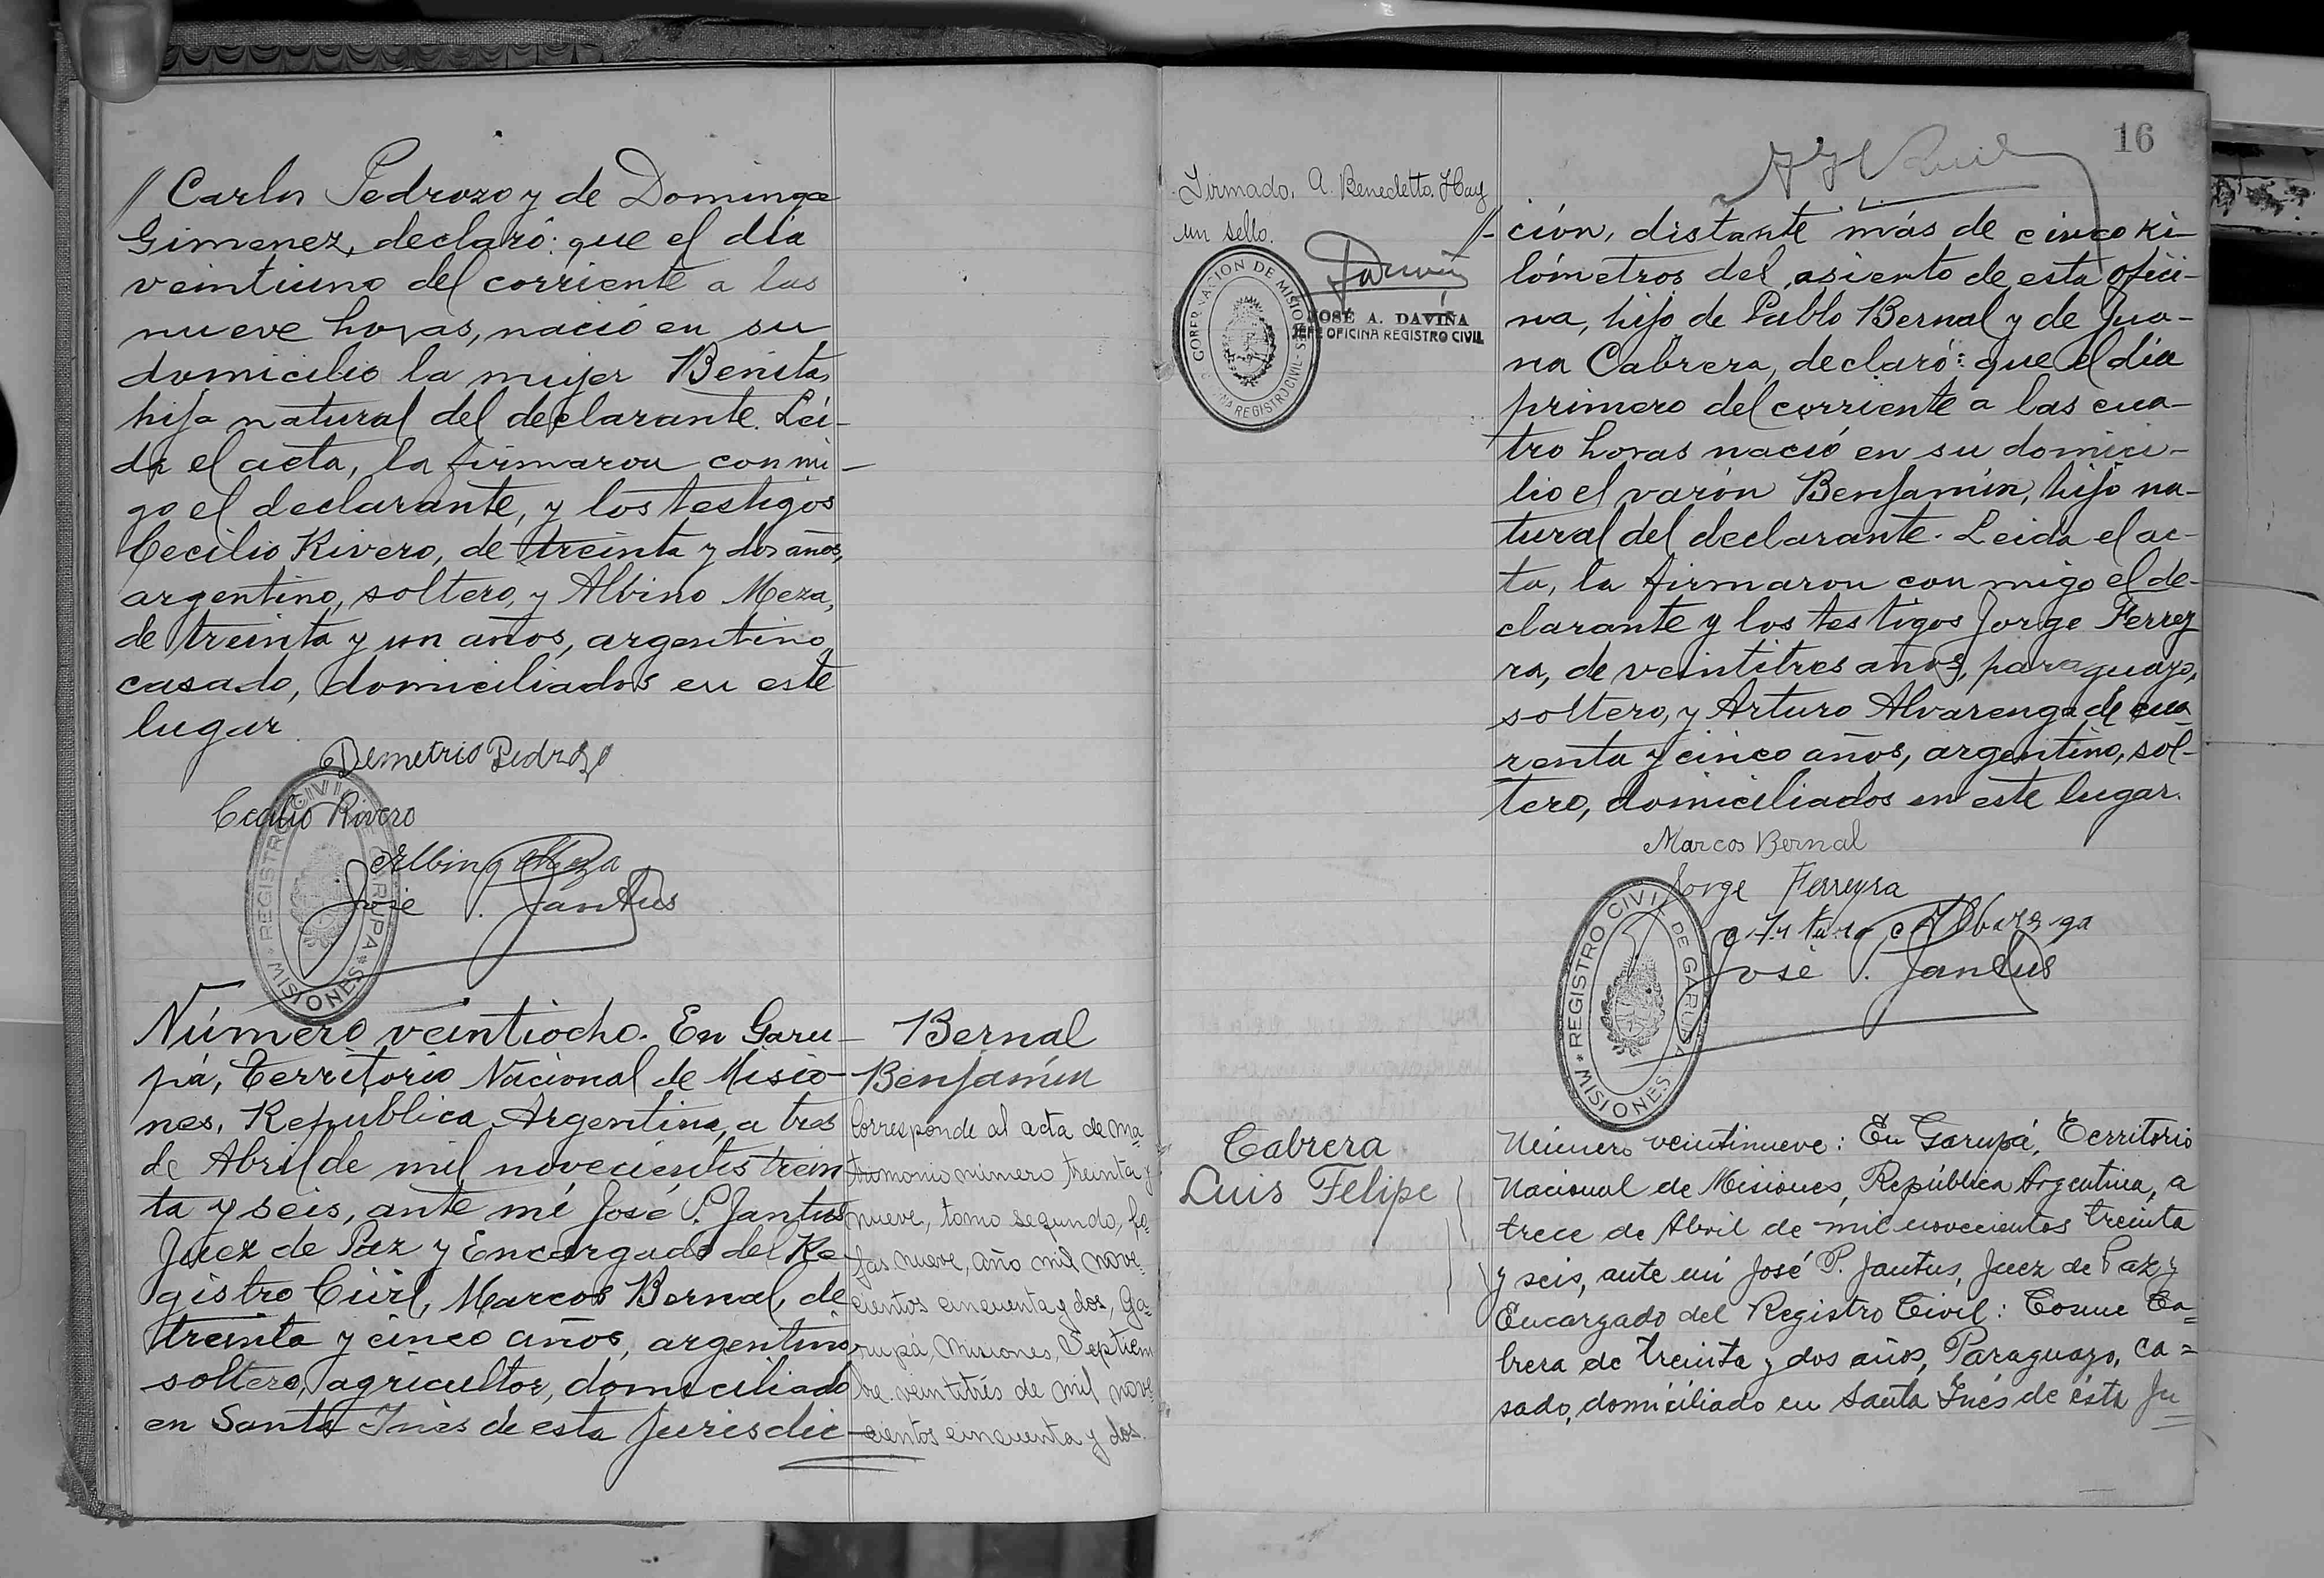 // Carlos Pedrozo y de Dominga
Gimenez, declaró: que el día
veintiuno del corriente a las
nueve horas, nació en su
domicilio la mujer Benita,
hija natural del declarante. Leí-
da el acta, la firmaron con mi-
go el declarante, y los testigos
Cecilio Rivero, de treinta y dos años,
argentino, soltero, y Albino Meza,
de treinta y un años, argentino,
casado, domiciliados en este
lugar.
Demetrio Pedrozo
Cecilio Rivero
Albino Meza
José P. Jantus
REGISTRO CIVIL DE GARUPA
* MISIONES *
Número veintiocho. En Garu-
pá, Territorio Nacional de Misio-
nes, Republica Argentina, a tres
de Abril de mil novecientos trein
ta y seis, ante mí José P. Jantus
Juez de Paz y Encargado del Re-
gistro Civil, Marcos Bernal, de
treinta y cinco años, argentino
soltero, agricultor, domiciliado
en Santa Inés de esta jurisdic-
Bernal
Benjamín
Corresponde al acta de ma-
trimonio número treinta y
nueve, tomo segundo, fo-
jas nueve, año mil nove-
cientos cincuenta y dos, Ga-
rupá, Misiones, Septiem
bre veintitrés de mil nove-
cientos cincuenta y dos.
Firmado, A. Benedetto. Hay
un sello.
GOBERNACION DE MISIONES
REGISTRO CIVIL
JOSÉ A. DAVIÑA
JEFE OFICINA REGISTRO CIVIL
16
//-ción, distante más de cinco ki-
lómetros del asiento de esta ofici-
na, hijo de Pablo Bernal y de Jua-
na Cabrera, declaró: que el día
primero del corriente a las cua-
tro horas nació en su domici-
lio el varón Benjamín, hijo na-
tural del declarante. Leida el ac-
ta, la firmaron con migo el de-
clarante y los testigos Jorge Ferrey
ra, de veintitres años, paraguayo,
soltero, y Arturo Alvarenga de cua-
renta y cinco años, argentino, sol-
tero, domiciliados en este lugar.
Marcos Bernal
Jorge Ferreyra
Arturo Albarenga
José P. Jantus
REGISTRO CIVIL DE GARUPA
* MISIONES *
Cabrera
Luis Felipe
Número veintinueve: En Garupá, Territorio
Nacional de Misiones, República Argentina, a
trece de Abril de mil novecientos treinta
y seis, ante mi José P. Jantus, Juez de Paz y
Encargado del Registro Civil: Cosme Ca=
brera de treinta y dos años, Paraguayo, ca=
sado, domiciliado en Santa Inés de ésta Ju=